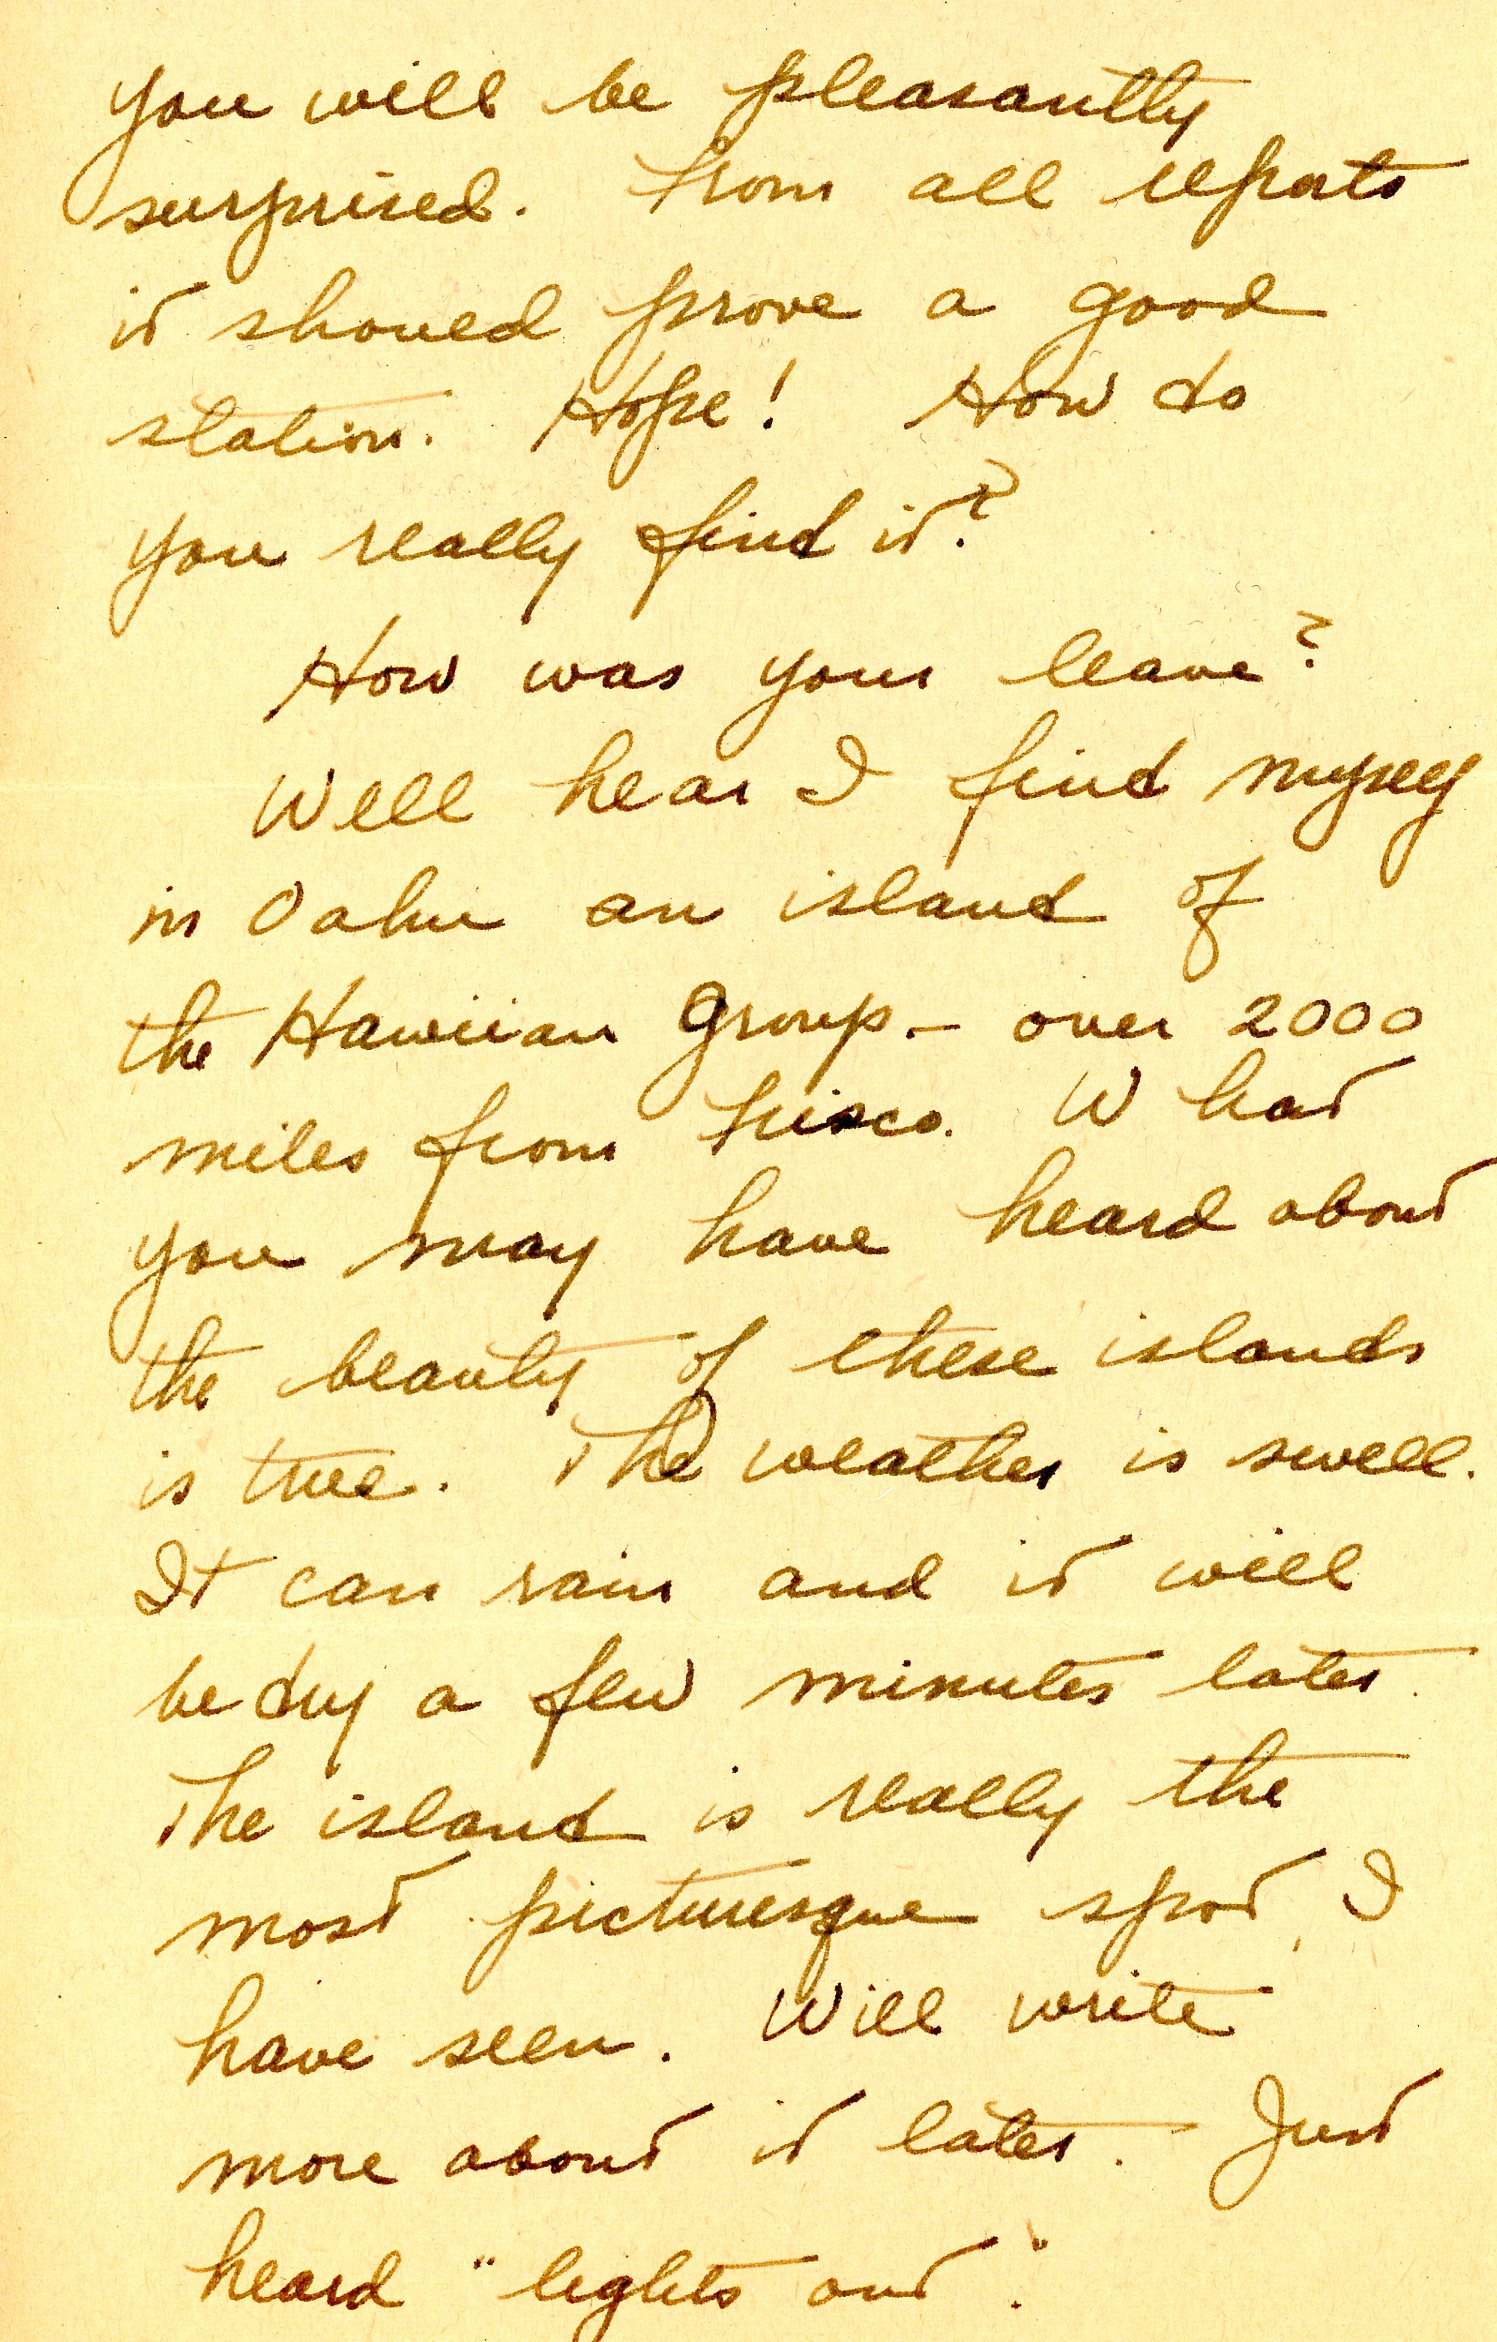 you will be pleasantly
surprised. From all reports
it should prove a good
station. Hope! How do
you really find it?
How was your leave?
Well hear I find myself
in Oahu an island of
the Hawiian Group – over 2000
miles from Frisco. What
you may have heard about
the beauty of these islands
is true. The weather is swell.
It can rain and it will
be dry a few minutes later.
The island is really the
most picturesque spot I
have seen. Will write
more about it later. Just
heard "lights out".